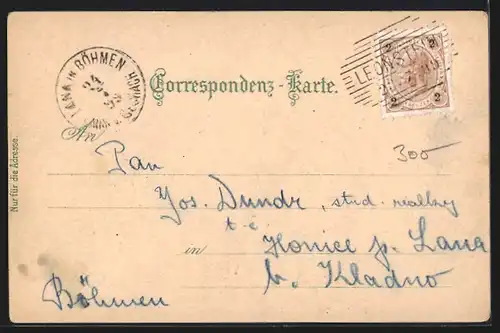 LANA in BÖHMEN
24
99
LEONSTEIN
2 2
2 2
Correspondenz-Karte.
An
300
Nur für die Adresse.
Pan
Jos. Dundr, stud. reálky
t. č.
in Honice p. Lana
b. Kladno
Böhmen